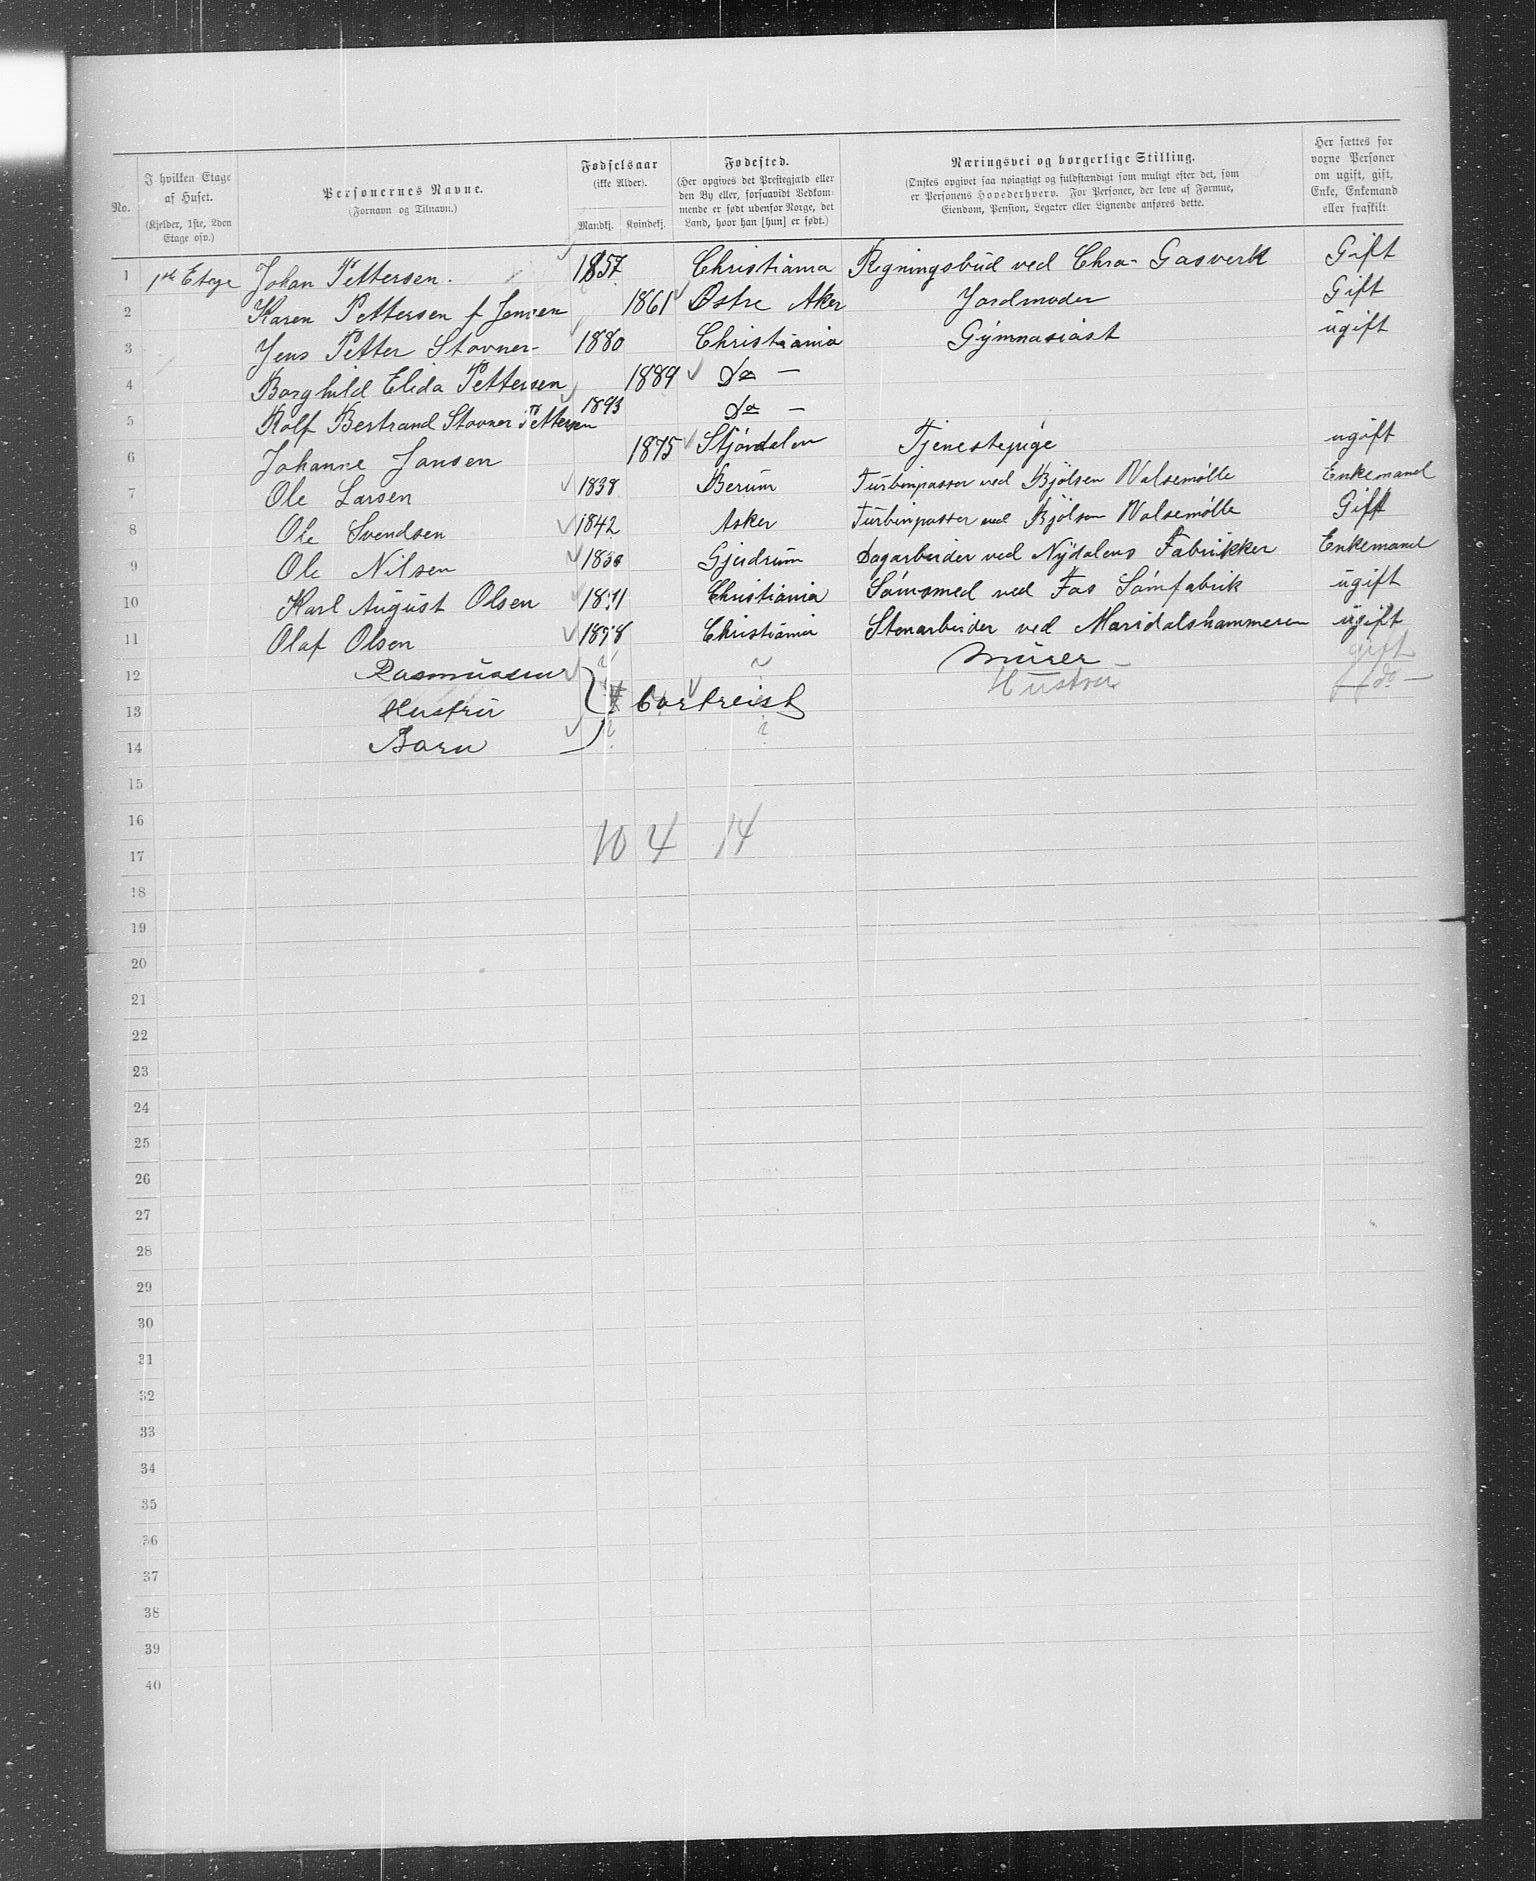 No.
I hvilken Etage af Huset. (Kjelder, 1ste, 2den Etage osv.)
Personernes Navne. (Fornavn og Tilnavn.)
Fødselsaar (ikke Alder). Mandkj. Kvindekj.
Fødested. (Her opgives det Prestegjæld eller den By eller, forsaavidt Vedkommende er født udenfor Norge, det Land, hvor han [hun] er født.)
Næringsvei og borgerlige Stilling. (Ønskes opgivet saa nøiagtigt og fuldstændigt som muligt efter det, som er Personens Hovederhverv. For Personer, der leve af Formue, Eiendom, Pension, Legater eller Lignende anføres dette.
Her sættes for voxne Personer om ugift, gift, Enke, Enkemand eller fraskilt
1 1ste Etage Johan Pettersen. 1857 Christiania Regningsbud ved Chra. Gasverk Gift
2 Karen Pettersen f Jensen 1861 Østre Aker Jordmoder Gift
3 Jens Petter Stovner 1880 Christiania Gymnasiast ugift
4 Borghild Elida Pettersen 1889 Do —
5 Rolf Bertrand Stovner Pettersen 1893 Do —
6 Johanne Jansen 1875 Stjørdalen Tjenestepige ugift
7 Ole Larsen 1838 Berum Turbinpasser ved Bjølsen Valsemølle Enkemand
8 Ole Svendsen 1842 Asker Turbinpasser ved Bjølsen Valsemølle Gift
9 Ole Nilsen 1830 Gjerdrum Dagarbeider ved Nydalens Fabrikker Enkemand
10 Karl August Olsen 1871 Christiania Sømsmed ved Fos Sømfabrik ugift
11 Olaf Olsen 1878 Christiania Stenarbeider ved Maridalshammeren ugift
12 Rasmussen ? ~ Murer gift
13 Hustru bortreist Hustru do —
14 Barn ? ?
15
16
17 10 4 14
18
19
20
21
22
23
24
25
26
27
28
29
30
31
32
33
34
35
36
37
38
39
40